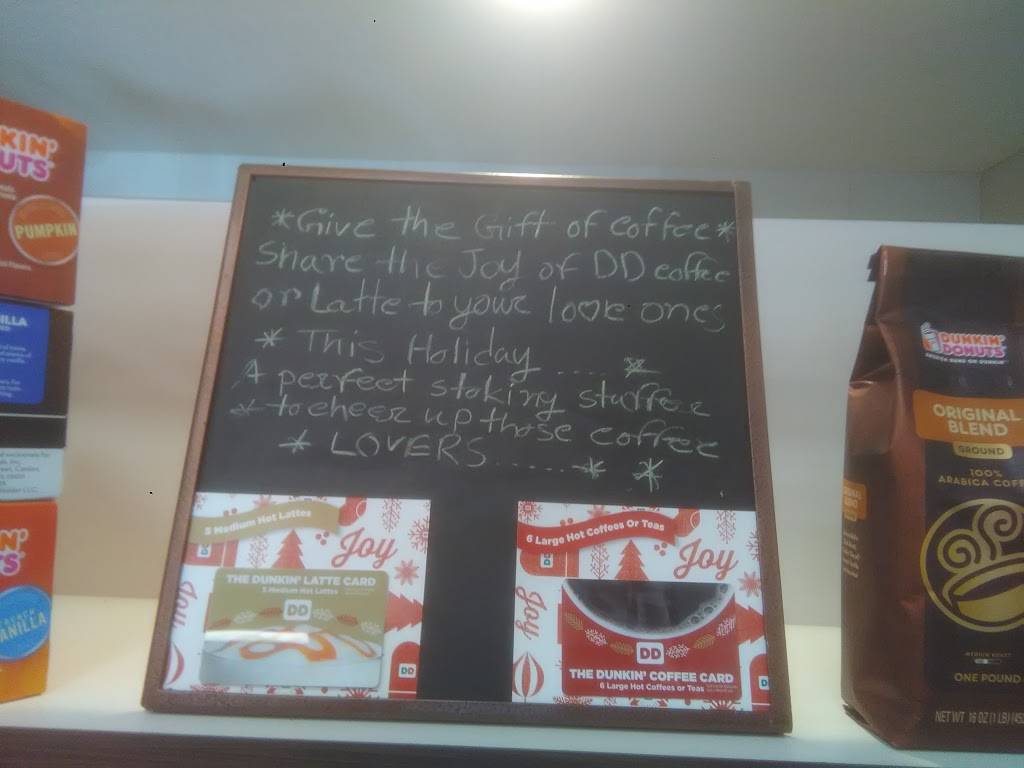 KIN'
UTS
PUMPKIN
ILLA
N'
S
FRENCH
VANILLA
*Give the Gift of coffee*
Share the Joy of DD coffee
or Latte to your love ones
* This Holiday .... *
A perfect stoking stuffer
* to cheer up those coffee
* LOVERS ......* *
5 Medium Hot Lattes
Joy
Joy
THE DUNKIN' LATTE CARD
5 Medium Hot Lattes
DD
6 Large Hot Coffees Or Teas
Joy
Joy
DD
THE DUNKIN' COFFEE CARD
6 Large Hot Coffees or Teas
DUNKIN'
DONUTS
AMERICA RUNS ON DUNKIN'
ORIGINAL
BLEND
GROUND
100%
ARABICA COFF
MEDIUM ROAST
ONE POUND
NET WT 16 OZ (1 LB) (45